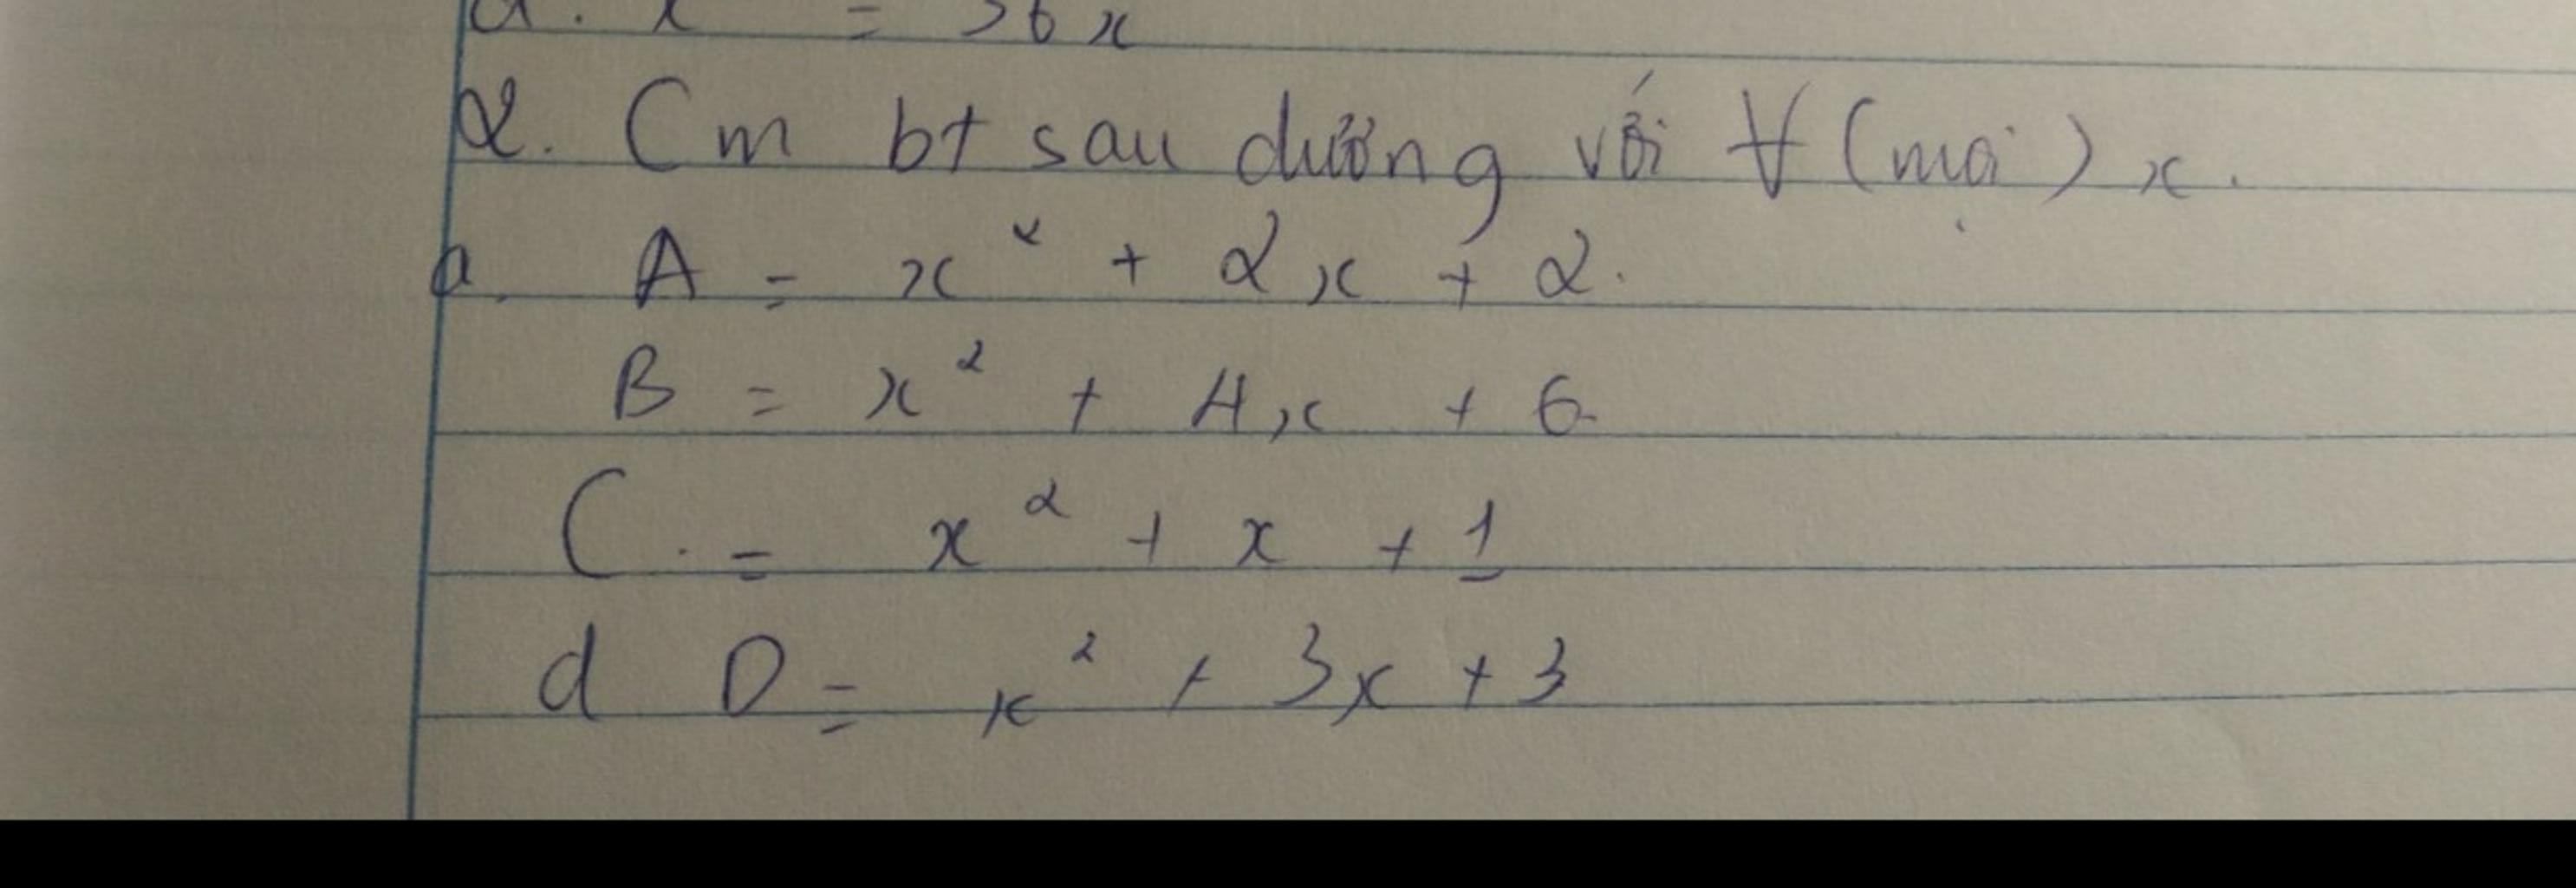 = 36x
2. Cm bt sau dương với ∀ (mọi) x.
a. A = x² + 2x + 2.
B = x² + 4x + 6.
C. = x² + x + 1
d D = x² + 3x + 3